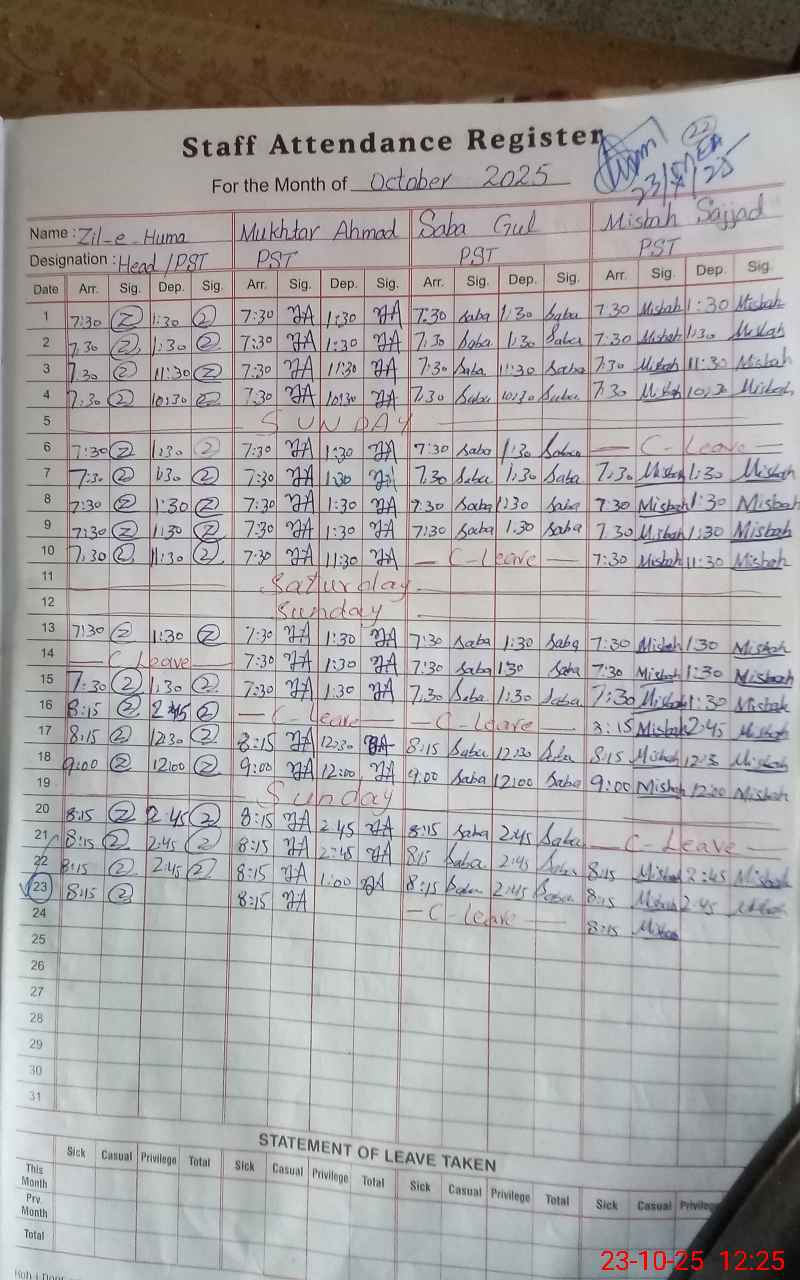 Staff Attendance Register
For the Month of October 2025
22
23/ /25
Name : Zil-e-Huma Mukhtar Ahmad Saba Gul Misbah Sajjad
Designation : Head/PST PST PST PST
Date Arr. Sig. Dep. Sig. Arr. Sig. Dep. Sig. Arr. Sig. Dep. Sig. Arr. Sig. Dep. Sig.
1 7:30 2 1:30 2 7:30 1:30 7:30 Saba 1:30 Saba 7:30 Misbah 1:30 Misbah
2 7:30 2 1:30 2 7:30 1:30 7:30 Saba 1:30 Saba 7:30 Misbah 1:30 Misbah
3 7:30 2 11:30 2 7:30 11:30 7:30 Saba 11:30 Saba 7:30 Misbah 11:30 Misbah
4 7:30 2 10:30 2 7:30 10:30 7:30 Saba 10:30 Saba 7:30 Misbah 10:30 Misbah
5 SUNDAY
6 7:30 2 1:30 2 7:30 1:30 7:30 Saba 1:30 Saba — C-Leave —
7 7:30 2 1:30 2 7:30 1:30 7:30 Saba 1:30 Saba 7:30 Misbah 1:30 Misbah
8 7:30 2 1:30 2 7:30 1:30 7:30 Saba 1:30 Saba 7:30 Misbah 1:30 Misbah
9 7:30 2 1:30 2 7:30 1:30 7:30 Saba 1:30 Saba 7:30 Misbah 1:30 Misbah
10 7:30 2 11:30 2 7:30 11:30 — C-Leave — 7:30 Misbah 11:30 Misbah
11 Saturday
12 Sunday
13 7:30 2 1:30 2 7:30 1:30 7:30 Saba 1:30 Saba 7:30 Misbah 1:30 Misbah
14 — C Leave — 7:30 1:30 7:30 Saba 1:30 Saba 7:30 Misbah 1:30 Misbah
15 7:30 2 1:30 2 7:30 1:30 7:30 Saba 1:30 Saba 7:30 Misbah 1:30 Misbah
16 8:15 2 2:45 2 — C-Leave — — C-Leave — 8:15 Misbah 2:45 Misbah
17 8:15 2 12:30 2 8:15 12:30 8:15 Saba 12:30 Saba 8:15 Misbah 12:3 Misbah
18 9:00 2 12:00 2 9:00 12:00 9:00 Saba 12:00 Saba 9:00 Misbah 12:00 Misbah
19 Sunday
20 8:15 2 2:45 2 8:15 2:45 8:15 Saba 2:45 Saba — C-Leave —
21 8:15 2 2:45 2 8:15 2:45 8:15 Saba 2:45 Saba 8:15 Misbah 2:45 Misbah
22 8:15 2 2:45 2 8:15 1:00 8:15 Saba 2:45 Saba 8:15 Misbah 2:45
23 8:15 2 8:15 — C-Leave — 8:15
24
25
26
27
28
29
30
31
STATEMENT OF LEAVE TAKEN
Sick Casual Privilege Total Sick Casual Privilege Total Sick Casual Privilege Total Sick Casual
This Month
Prv. Month
Total
23-10-25 12:25